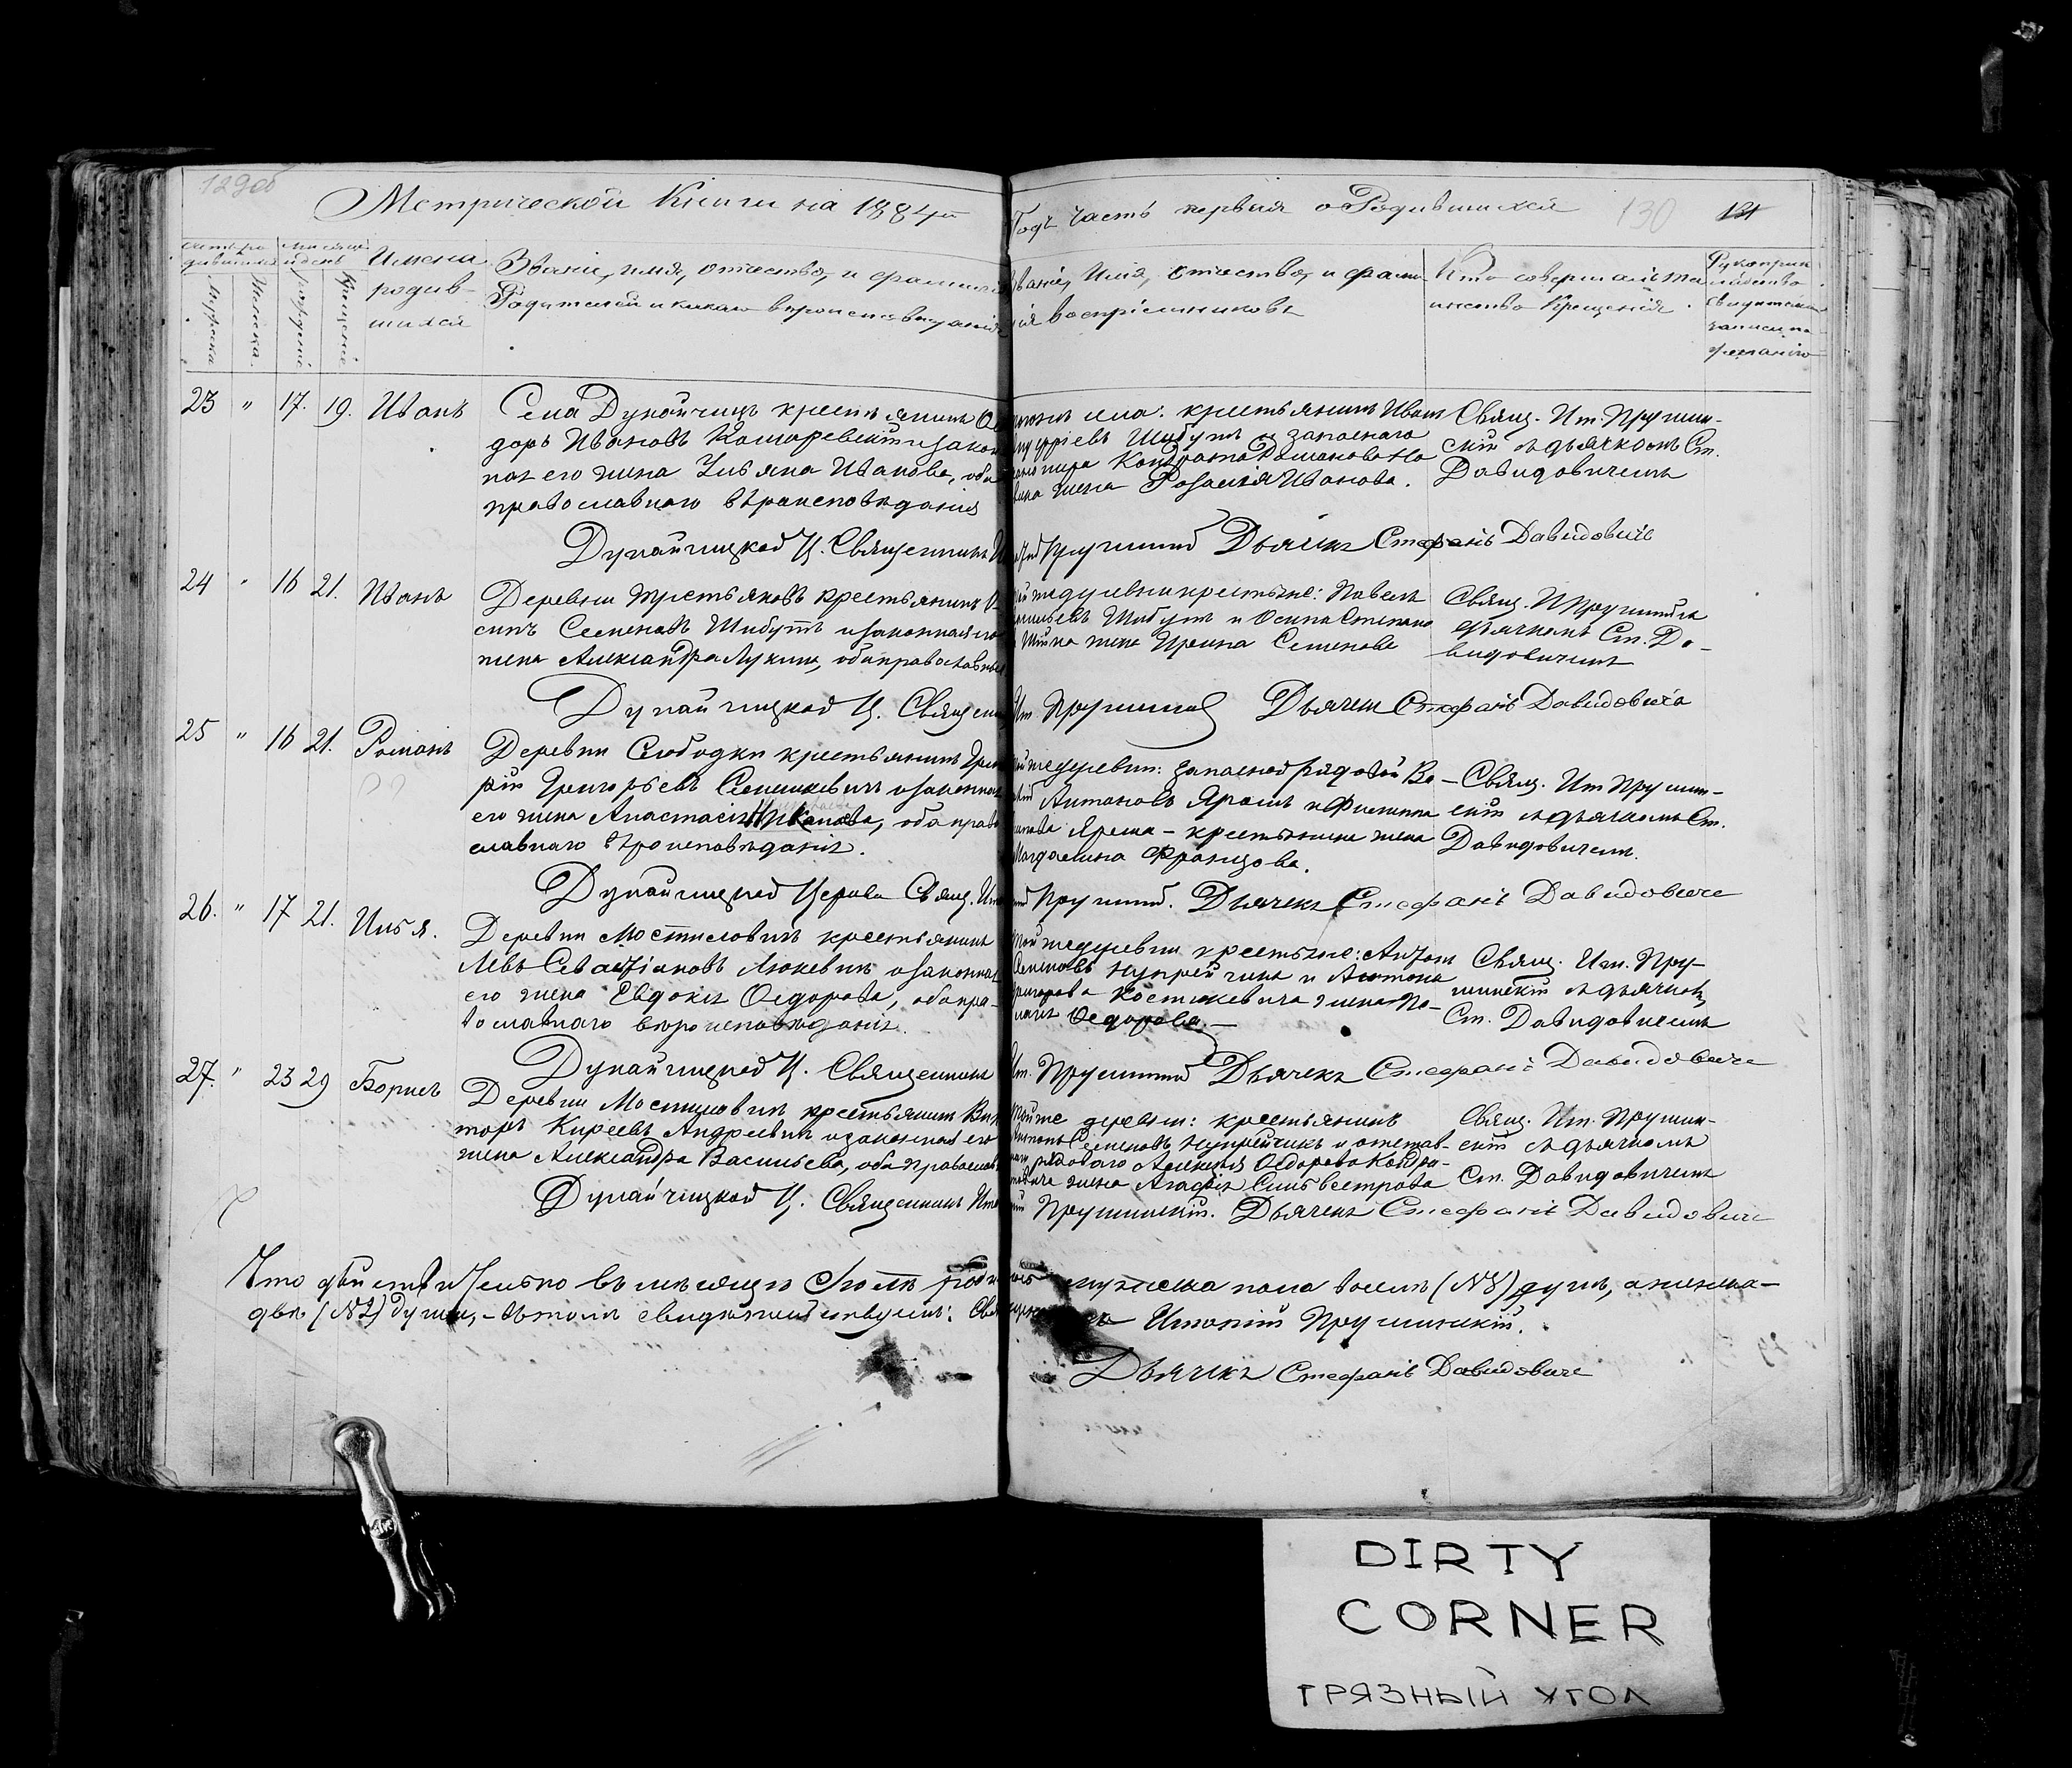 129об
Метрической Книги на 1884й
Годъ Часть первая о Родившихся 130 131
Имена родившихся
Званіе, имя, отчество, и фамилія
Родителей и какого вѣроисповѣданія
Званіе, Имя, отчество, и фами-
лія воспріемниковъ
Кто совершалъ та-
инство Крещенія.
Мужеска. Женска. Рожденіе Крещеніе
23 " 17. 19. Иванъ
Села Дунайчицъ крестьянинъ
доръ Ивановъ Комаревскій и закон
ная его жена Ульяна Иванова, оба
православнаго вѣроисповѣданія
села: крестьянинъ Иванъ
Шибутъ и запаснаго
Кондрата Романова
жена Розалія Иванова.
Свящ. Иг. Прушин-
скій съ дьячкомъ Ст.
Давидовичемъ
Дунайчицкой Ц. Священникъ
Прушинскій Дьячекъ Стефанъ Давидовичъ
24 " 16 21. Иванъ
Деревни Тристьяновъ крестьянинъ О-
сипъ Семеновъ Шибутъ и законная его
жена Александра Лукина, оба православные
же деревни крестьяне: Павелъ
Шибутъ и Осипа Степано
жена Ирина Семенова
Свящ. И Прушинск
дьячкомъ Ст. Да-
видовичемъ
Дунайчицкой Ц. Священ
Иг. Прушинскій Дьячекъ Стефанъ Давидовичъ
25 " 16 21. Романъ
Деревни Слободки крестьянинъ Григо
рій Григорьевъ Семашкевичъ и законная
его жена Анастасія, оба право
славнаго вѣроисповѣданія.
же деревни: запасной рядовой Ва-
Антоновъ Ярошъ и Филиппа
Яроша - крестьянина жена
Магдалина Францова.
Свящ. Иг Прушин-
скій съ дьячкомъ Ст.
Давидовичемъ.
Дунайчицкой Церкви Свящ. Игн
Прушинскій. Дьячекъ Стефанъ Давидовичъ
26. " 17 21. Илья.
Деревни Мостиловичъ крестьянинъ
Левъ Севастіановъ Люкевичъ и законная
его жена Евдокія Ѳедорова, оба пра-
вославнаго вѣроисповѣданія.
Той же деревни крестьяне: Антонъ
Семеновъ Купрейчикъ и Антона
Григорова Костюкевича жена
Ѳедорова. -
Свящ. Игн. Пру-
шинскій съ дьячкомъ
Ст. Давидовичемъ
Дунайчицкой Ц. Священникъ
Иг. Прушинскій Дьячекъ Стефанъ Давидовичъ
27. " 23 29 Борисъ
Деревни Мостиловичъ крестьянинъ Вик
торъ Киреевъ Андреевичъ и законная его
жена Александра Васильева, оба православ
Той же деревни: крестьянинъ
Антонъ Семеновъ Купрейчикъ и отстав-
наго рядоваго Алексѣя Ѳедорова Кондра-
жена Агафія Сильвестрова
Свящ. Иг. Прушин-
скій съ дьячкомъ
Ст. Давидовичемъ
Дунайчицкой Ц. Священникъ Игн
Прушинскій. Дьячекъ Стефанъ Давидовичъ
Что дѣйствительно въ мѣсяцѣ Іюлѣ родилось мужеска пола восемь (№8) душъ, а женска-
двѣ (№2) души, - въ томъ свидѣтельствуемъ: Священникъ Игнатій Прушинскій.
Дьячекъ Стефанъ Давидовичъ
DIRTY
CORNER
ГРЯЗНЫЙ УГОЛ